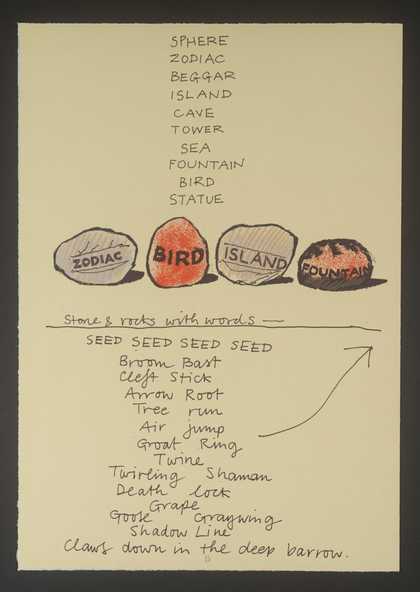 SPHERE
ZODIAC
BEGGAR
ISLAND
CAVE
TOWER
SEA
FOUNTAIN
BIRD
STATUE
ZODIAC BIRD ISLAND FOUNTAIN
Stones rocks with words —
SEED SEED SEED SEED
Broom Bast
Cleft Stick
Arrow Root
Tree run
Air jump
Groat Ring
Twine
Twirling Shaman
Death lock
Grape
Goose Graywing
Shadow Line
Claws down in the deep barrow.